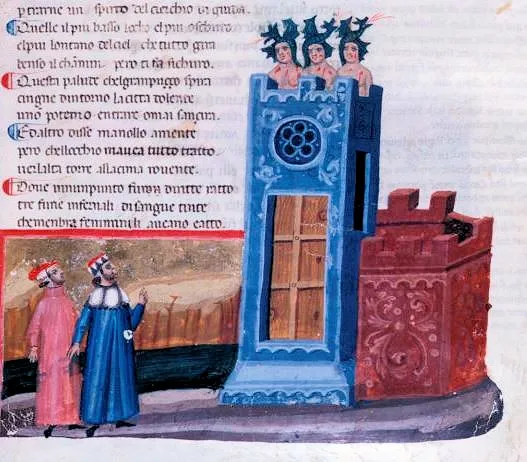 p trarne un spirto del cierchio di giuda.
Quelle il piu basso locho el piu oschuro
el piu lontano del ciel che tutto gira
ben so il chamin pero ti fa sichuro.
Questa palude chel gran puzzo spira
cingne dintorno la citta dolente
u no potemo entrare omai sanzira.
Et altro disse ma nollo amente
pero chellocchio mavea tutto tratto
ver lalta torre alla cima rovente.
Dove in un punto furon dritte ratto
tre furie infernali di sangue tinte
che membra feminili aveano e atto.